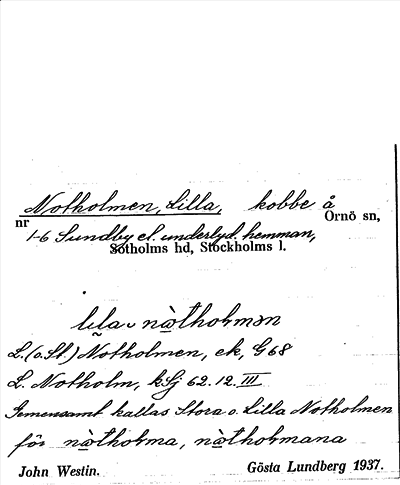 Notholmen, Lilla, kobbe å Ornö sn,
nr 1-6 Sundby el. underlyd. hemman,
Sotholms hd, Stockholms l.
lıla nɑ̀tholmən
L. (o. St.) Notholmen, ek, G 68
L. Notholm, kSj 62.12.III
Gemensamt kallas Stora o. Lilla Notholmen
för nɑ̀tholma, nɑ̀tholmana
John Westin. Gösta Lundberg 1937.